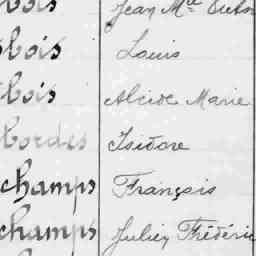 bois Jean Mle
bois Louis
bois Alcide Marie
bordes Isidore
champs François
champs Julien Frédéric